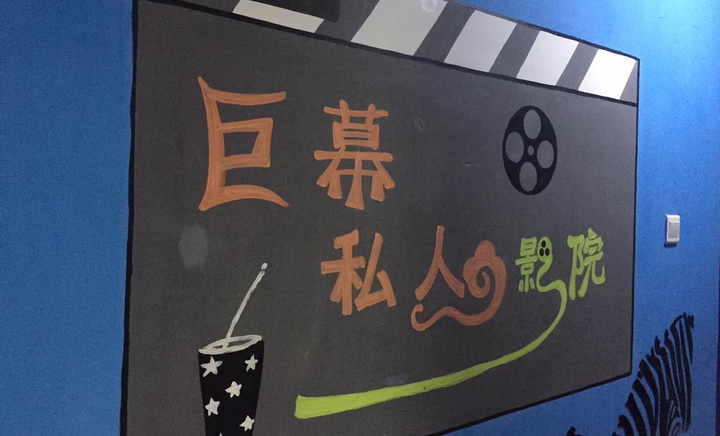 巨幕
私人影院